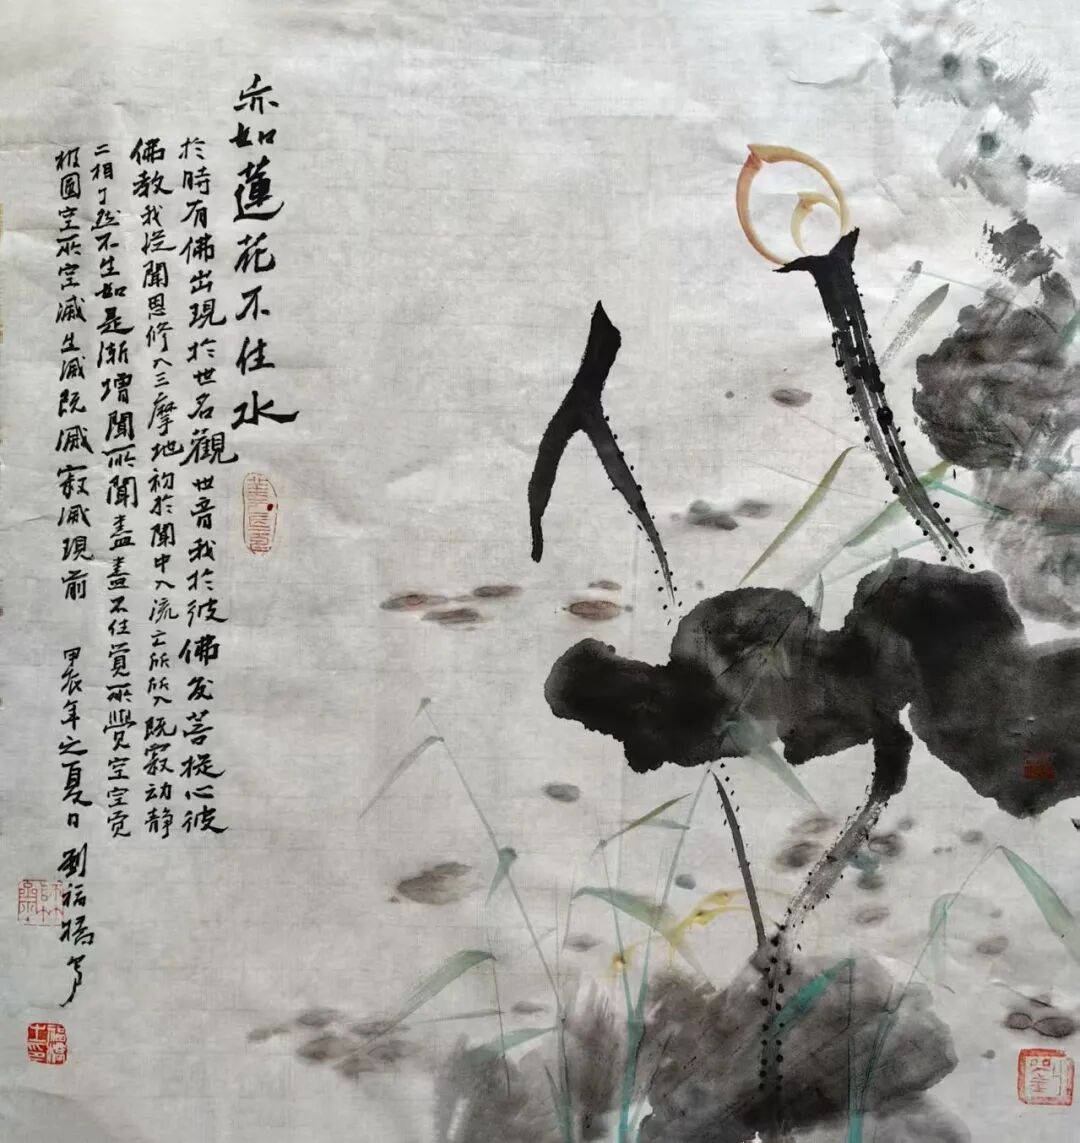 亦如蓮花不住水
於時有佛出現於世名觀世音我於彼佛发菩提心彼
佛教我從聞思修入三摩地初於聞中入流亡所所入既寂动静
二相了然不生如是漸增聞所聞盡盡不住覺所覺空空覺
極圆空所空滅生滅既滅寂滅現前 甲辰年之夏日 劉福橋